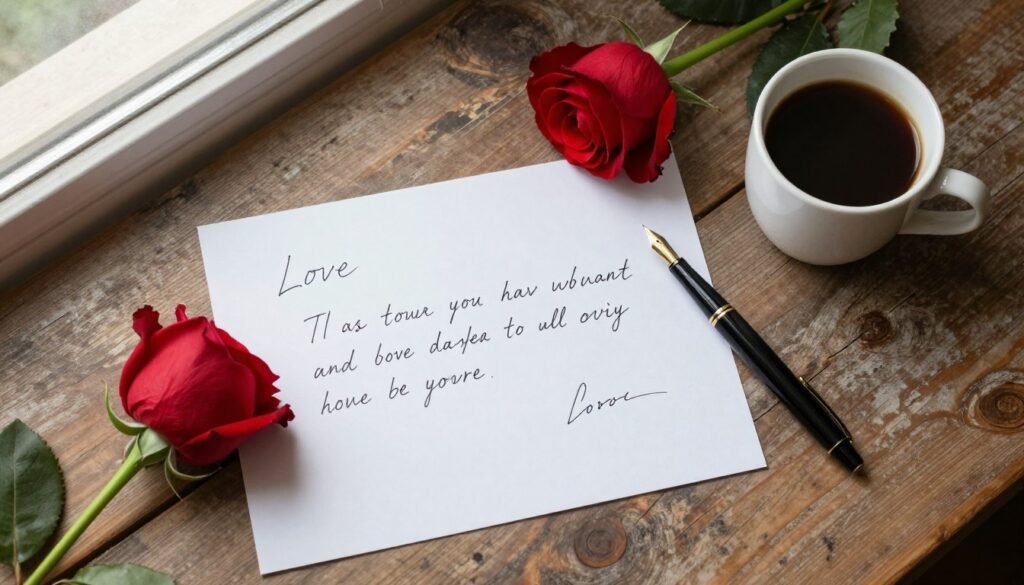 Love
Tl as towr you hav wbuant
and bove dayea to ull oviy
houe be yovre.